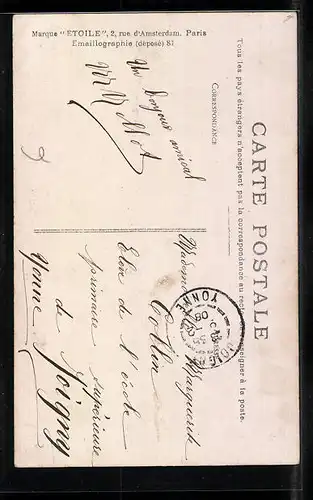 Marque "ÉTOILE", 2, rue d'Amsterdam, Paris
Emaillographie (déposé) 87
CARTE POSTALE
Tous les pays étrangers n'acceptent pas la correspondance au recto, se renseigner à la poste.
CORRESPONDANCE
Un bonjour amical
Mot
Mademoiselle Marguerite
Collin
Elève de l'école
primaire supérieure
de Joigny
Yonne
YONNE